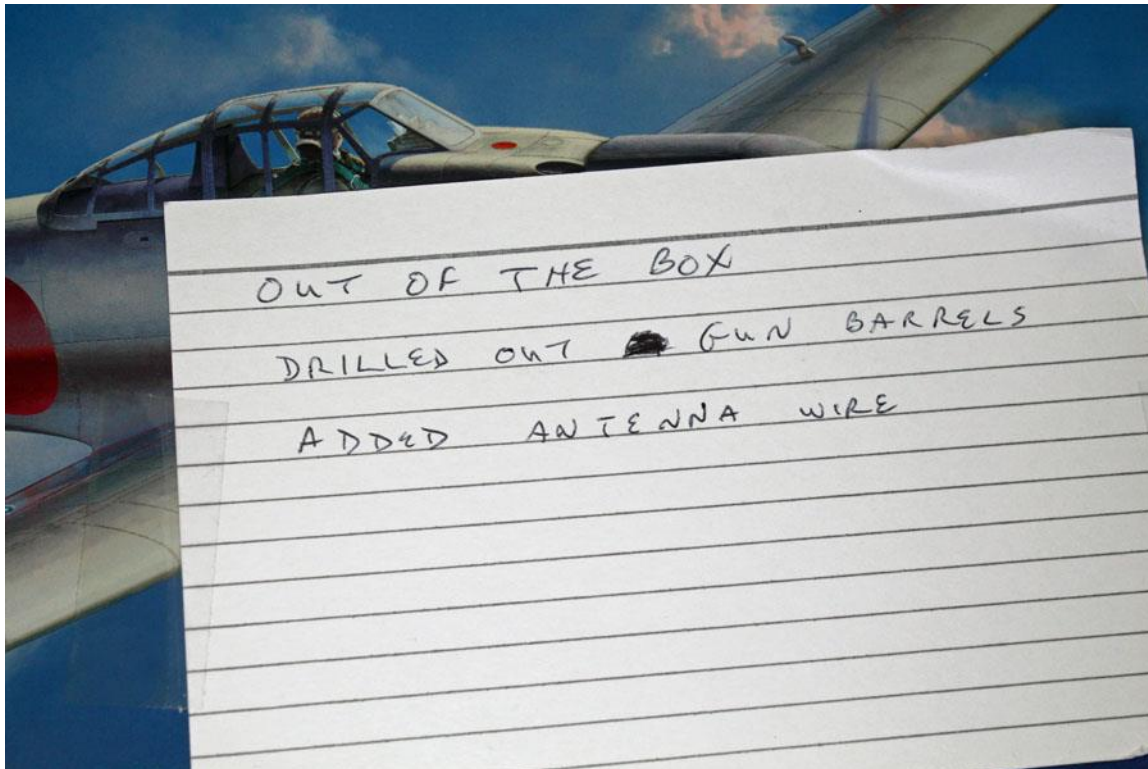 OUT OF THE BOX
DRILLED OUT GUN BARRELS
ADDED ANTENNA WIRE